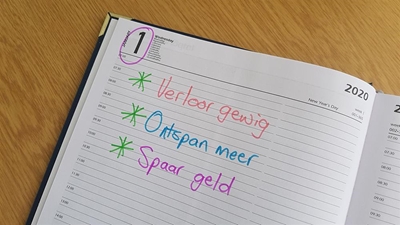 1
Wednesday
2020
New Year's Day
Verloor gewig
Ontspan meer
Spaar geld